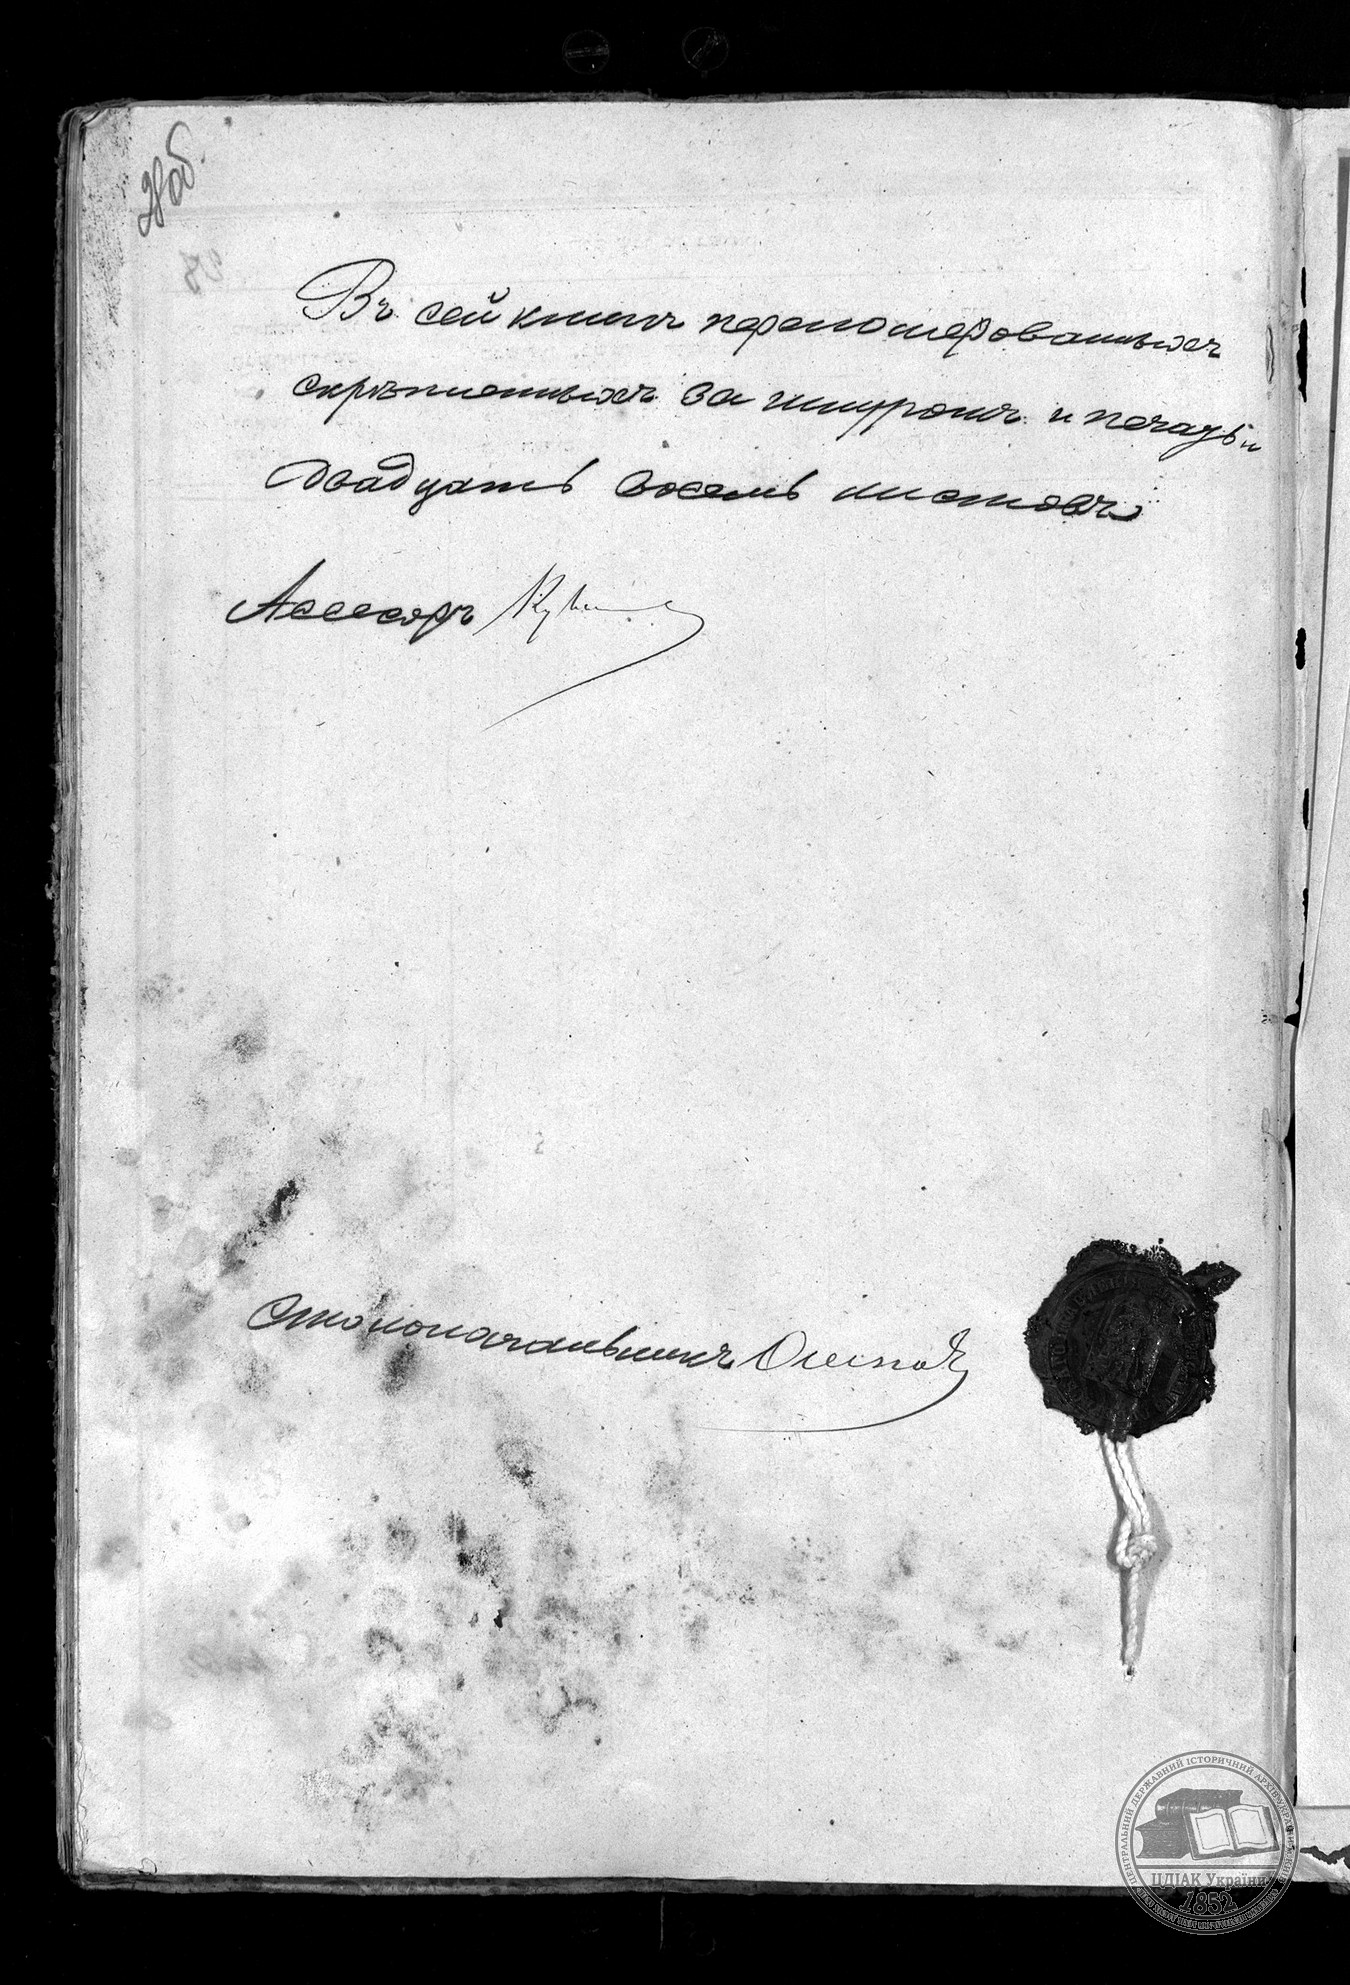 28 об.
Въ сей книгѣ переномерованныхъ
скрѣпленныхъ за шнуромъ и печатью
двадцать восемь листовъ
Ассесоръ
Столоначальникъ
ЦЕНТРАЛЬНИЙ ДЕРЖАВНИЙ ІСТОРИЧНИЙ АРХІВ УКРАЇНИ
ЦДІАК України
1852